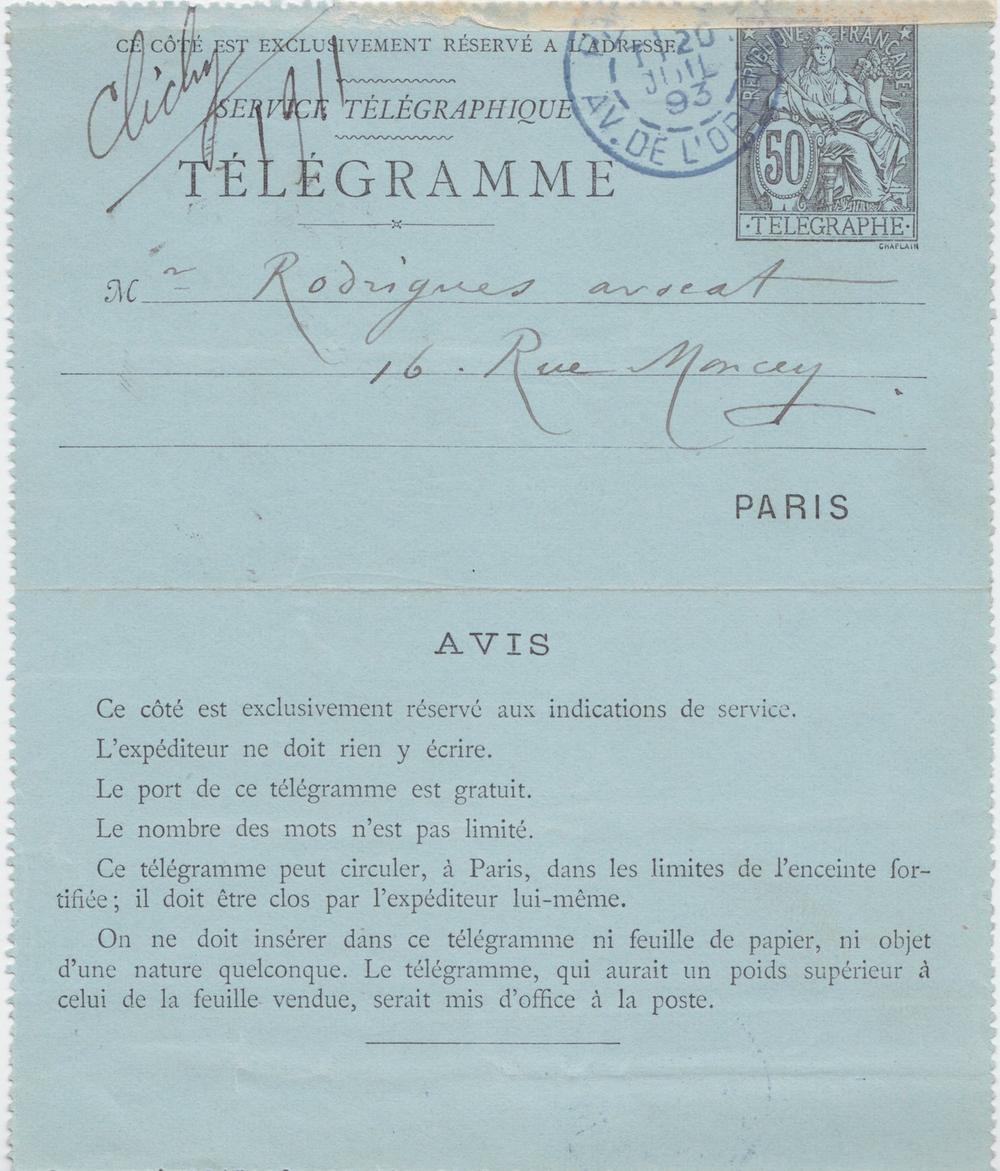 CE CÔTÉ EST EXCLUSIVEMENT RÉSERVÉ A L'ADRESSE
Clichy
SERVICE TÉLÉGRAPHIQUE
TÉLÉGRAMME
20
JUIL
93
AV. DE L'OP
RÉPUBLIQUE FRANÇAISE
50
·TELEGRAPHE·
CHAPLAIN
Mr Rodrigues avocat
16. Rue Moncey
PARIS
AVIS
Ce côté est exclusivement réservé aux indications de service.
L'expéditeur ne doit rien y écrire.
Le port de ce télégramme est gratuit.
Le nombre des mots n'est pas limité.
Ce télégramme peut circuler, à Paris, dans les limites de l'enceinte for-
tifiée; il doit être clos par l'expéditeur lui-même.
On ne doit insérer dans ce télégramme ni feuille de papier, ni objet
d'une nature quelconque. Le télégramme, qui aurait un poids supérieur à
celui de la feuille vendue, serait mis d'office à la poste.